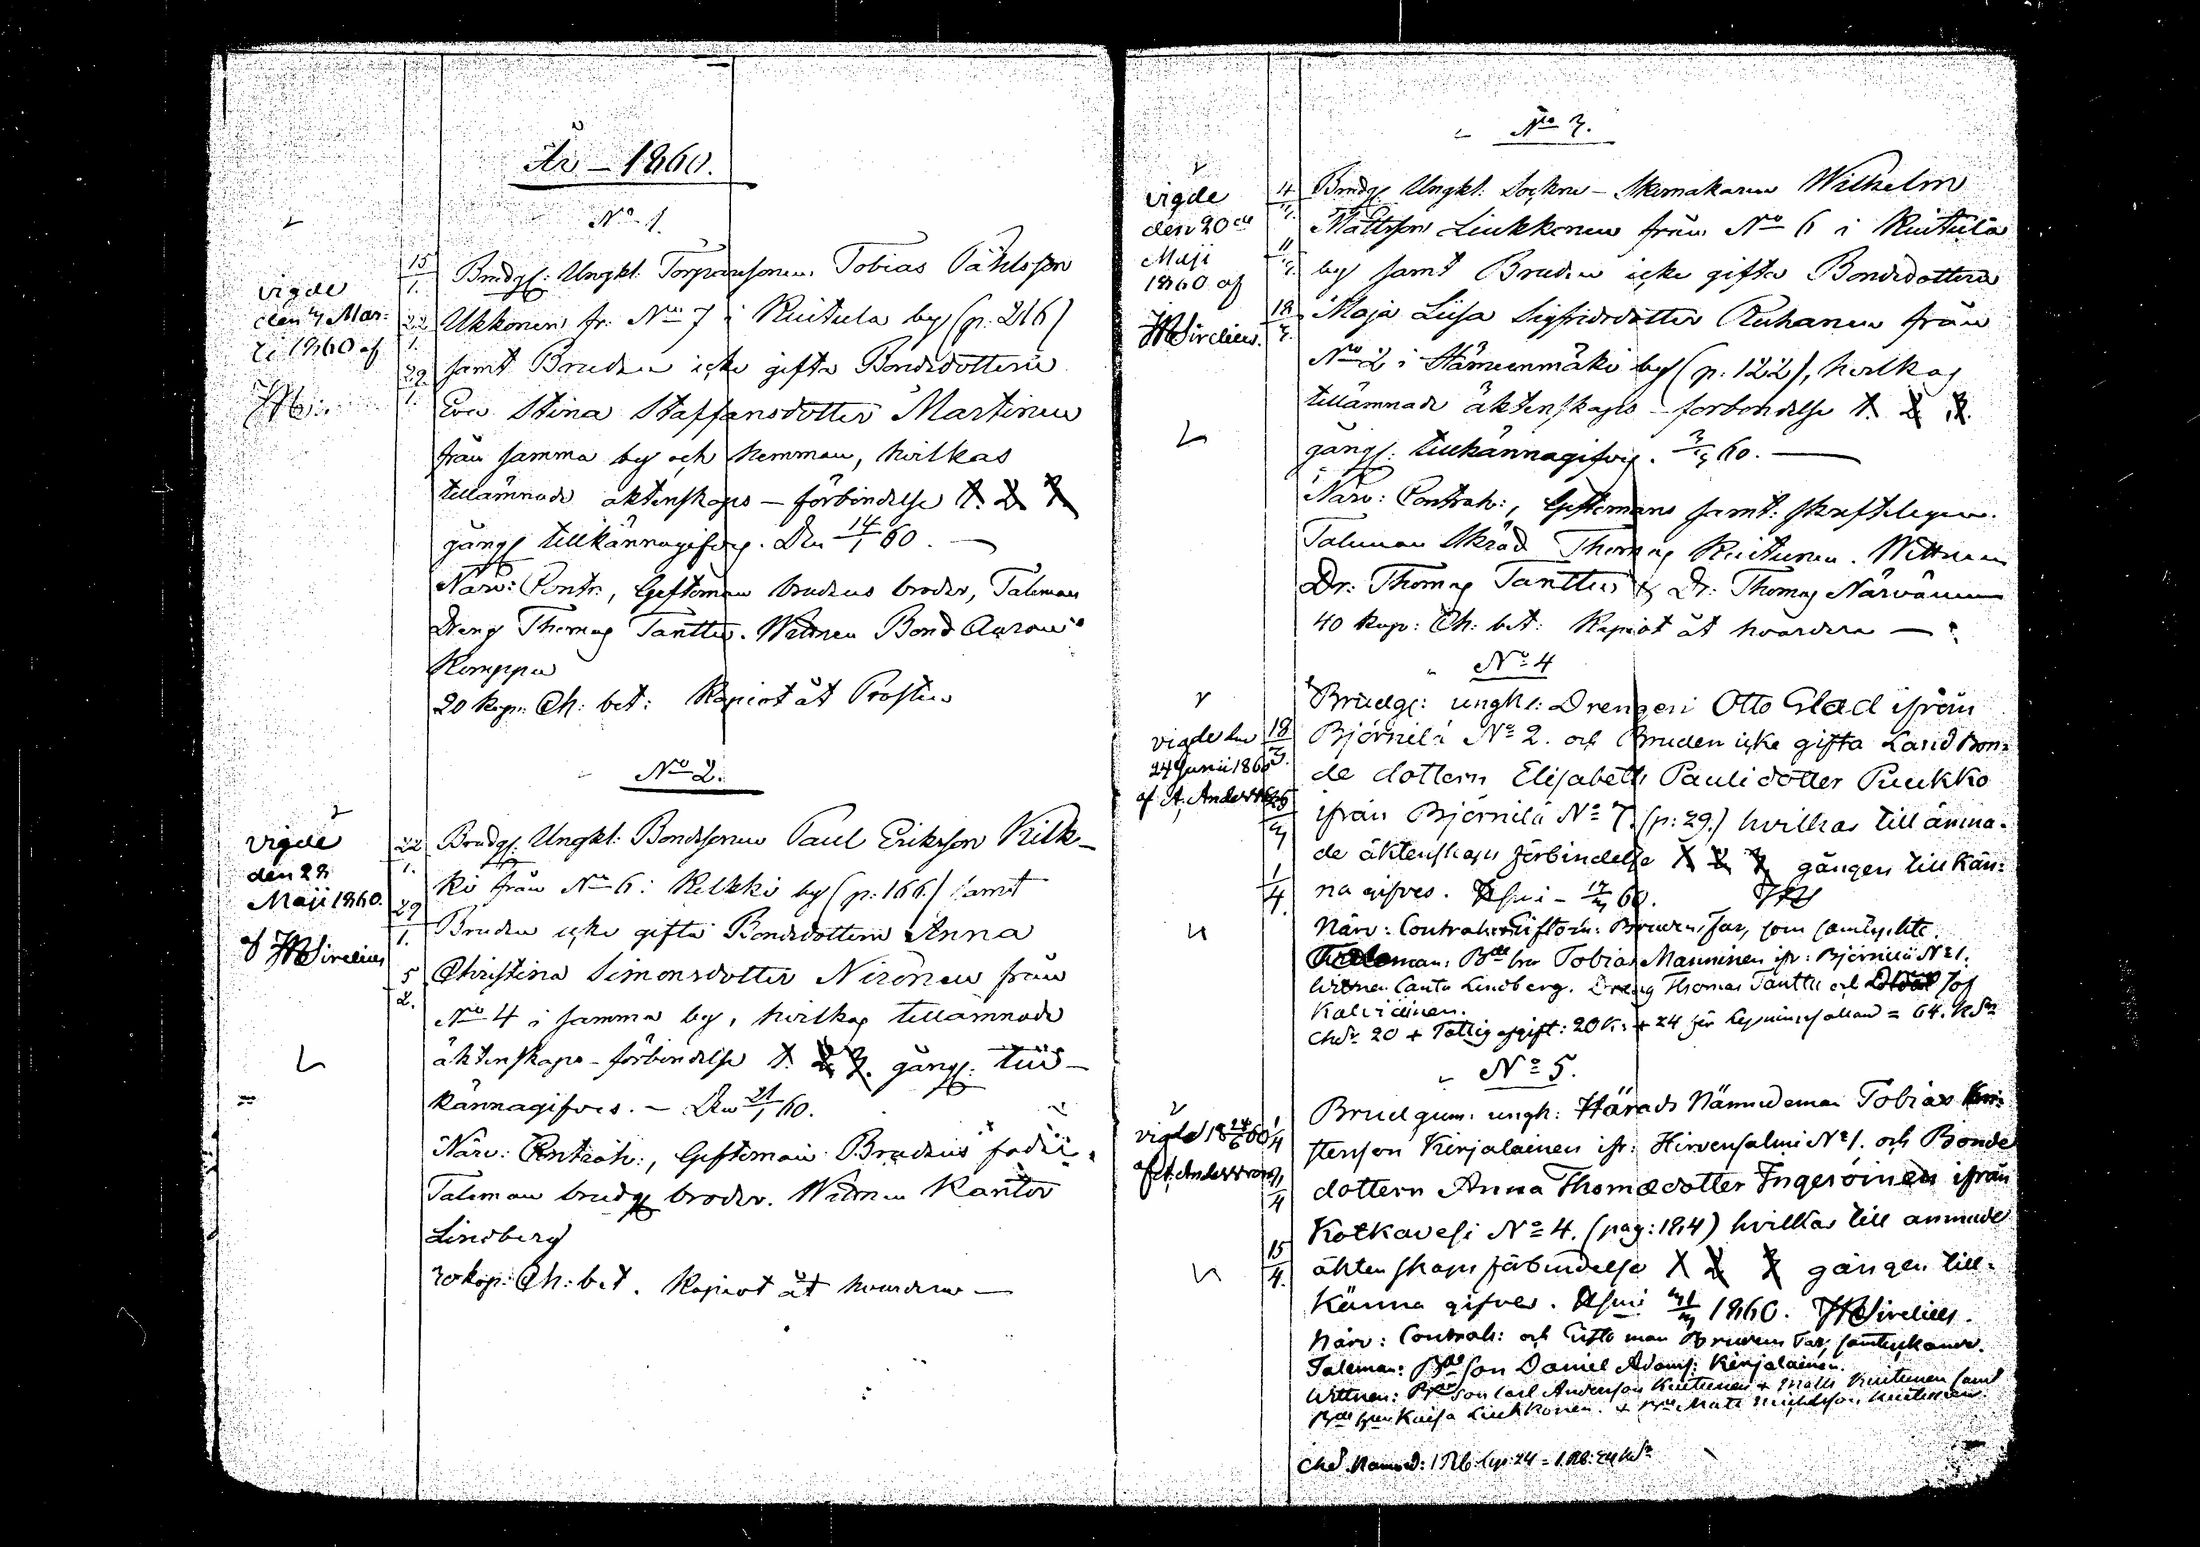 År – 1860.
No 1.
vigde
den 4 Mar-
ti 1860 af
15/1.
22/1.
29/1.
Brudg: Ungkl. Torparesonen Tobias Påhlsson
Ukkonen fr. No 7 i Kuitula by (p. 216)
samt Bruden icke gifta Bondedottern
Eva Stina Staffansdotter Martinen
från samma by och hemman, hvilkas
tillämnade äktenskaps – förbindelse 1. 2. 3.
gång tillkännagifves. Den 14/1 60. —
Närv: Contr:, Giftoman brudens broder, Taleman
Dreng Thomas Tanttu. Wittnen Bond Aaron
Komppa
20 kop: Ch: bet: Kapiot åt Prosten
No 2.
vigde
den 28
Maji 1860.
af JWSirelius
22/1.
29/1.
5/2.
Brudg: Ungkl. Bondesonen Paul Eriksson Kilk-
ki från No 6 i Kilkki by (p: 166) samt
Bruden icke gifta Bondedottern Anna
Christina Simonsdotter Nironen från
No 4 i samma by, hvilkas tillämnade
äktenskaps – förbindelse 1. 2. 3. gång: till-
kännagifves. – Den 21/1 60.
Närv: Contrah:, Giftoman Brudens fader.
Taleman brudg broder. Wittnen Kantor
Lindberg
kop: Ch: bet. Kapiot åt hvardera —
No 3.
vigde
den 20de
Maji
1860 af
JWSirelius.
4/3.
11/3.
18/3.
Brudg: Ungkl. Sockne – Skomakaren Wilhelm
Mattsson Liukkonen från No 6 i Kuitula
by samt Bruden icke gifta Bondedottern
Maja Lisa Sigfridsdotter Ruhanen från
No 2 i Hämeenmäki by (p: 122), hvilkas
tillämnade äktenskaps – förbindelse 1. 2. 3.
gång: tillkännagifves. 3/3 60. —
Närv: Contrah:, Giftomans samt: skrifteligen.
Taleman Skräd Thomas Kuitunen. Wittnen
Dr: Thomas Tanttu & Dr: Thomas Närvänen
40 kop: Ch: bet: Kapiot åt hvardera —
No 4
vigde den
24 Junii 1860
af A. Andersson
18/3.
25/3
1/4.
Brudg: ungkl: Drengen Otto Glad ifrån
Björnilä No 2. och Bruden icke gifta Land Bon-
de dottern Elisabeth Paulidotter Puukko
ifrån Björnilä No 7. (p: 29.) hvilkas till ämna-
de äktenskaps förbindelse 1 2 3 gången till kän-
na gifves. 17/3 60. JWS
Närv: Contrah: Giftom: Brudens far, som samtyckte.
Taleman: Bde Tobias Manninen ifr: Björnilä No 1.
Wittnen Cantr Lindberg. Dreng Thomas Tanttu och Jos
Kalviainen.
20 + Fattig afgift: 20 K: + 24 för Lysningssedlan = 64. K Sr
No 5.
vigde 18 24/6 60
af A. Andersson
1/4
9/4
15/4.
Brudgum: ungk: Härads Nämndeman Tobias
stensson Kirjalainen ifr: Hirvensalmi No 1. och Bonde
dottern Anna Thomædotter Ingeröinen ifrån
Kotkavesi No 4. (pag: 184) hvilkas till ämnade
äktenskaps förbindelse 1 2 3 gången till-
känna gifves. 31/3 1860. JWSirelius.
Närv: Contrah: och Gifto man Brudens Far, samtyckande.
Taleman: Bde Son Daniel Adams: Kirjalainen.
Wittnen: Bde Son Carl Andersson Kuitunen + Matts Kuitunen samt
Kaisa Liukkonen.